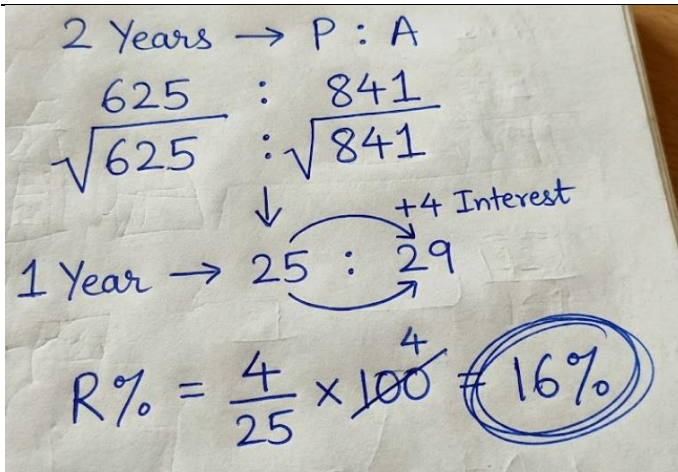 2 Years → P : A
625 : 841
√625 : √841
↓ +4 Interest
1 Year → 25 : 29
4
R% = 4/25 × 100 = 16%